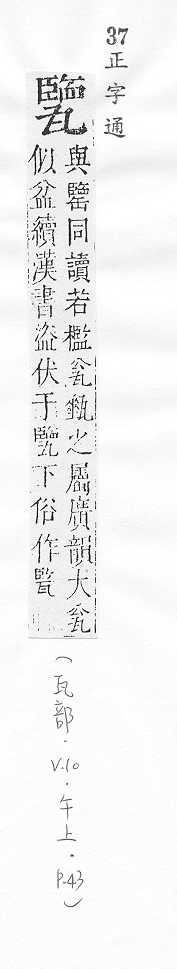 37 正字通
與同讀若檻瓮之屬廣韻大瓮
似盆續漢書盜伏于下俗作
(瓦部．V.10．午上．P.43)